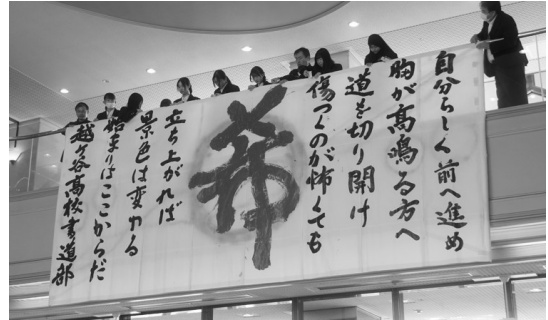 自分らしく前へ進め
胸が高鳴る方へ
道を切り開け
傷つくのが怖くても
立ち上がれば
景色は変わる
始まりはここからだ
越ヶ谷高校書道部